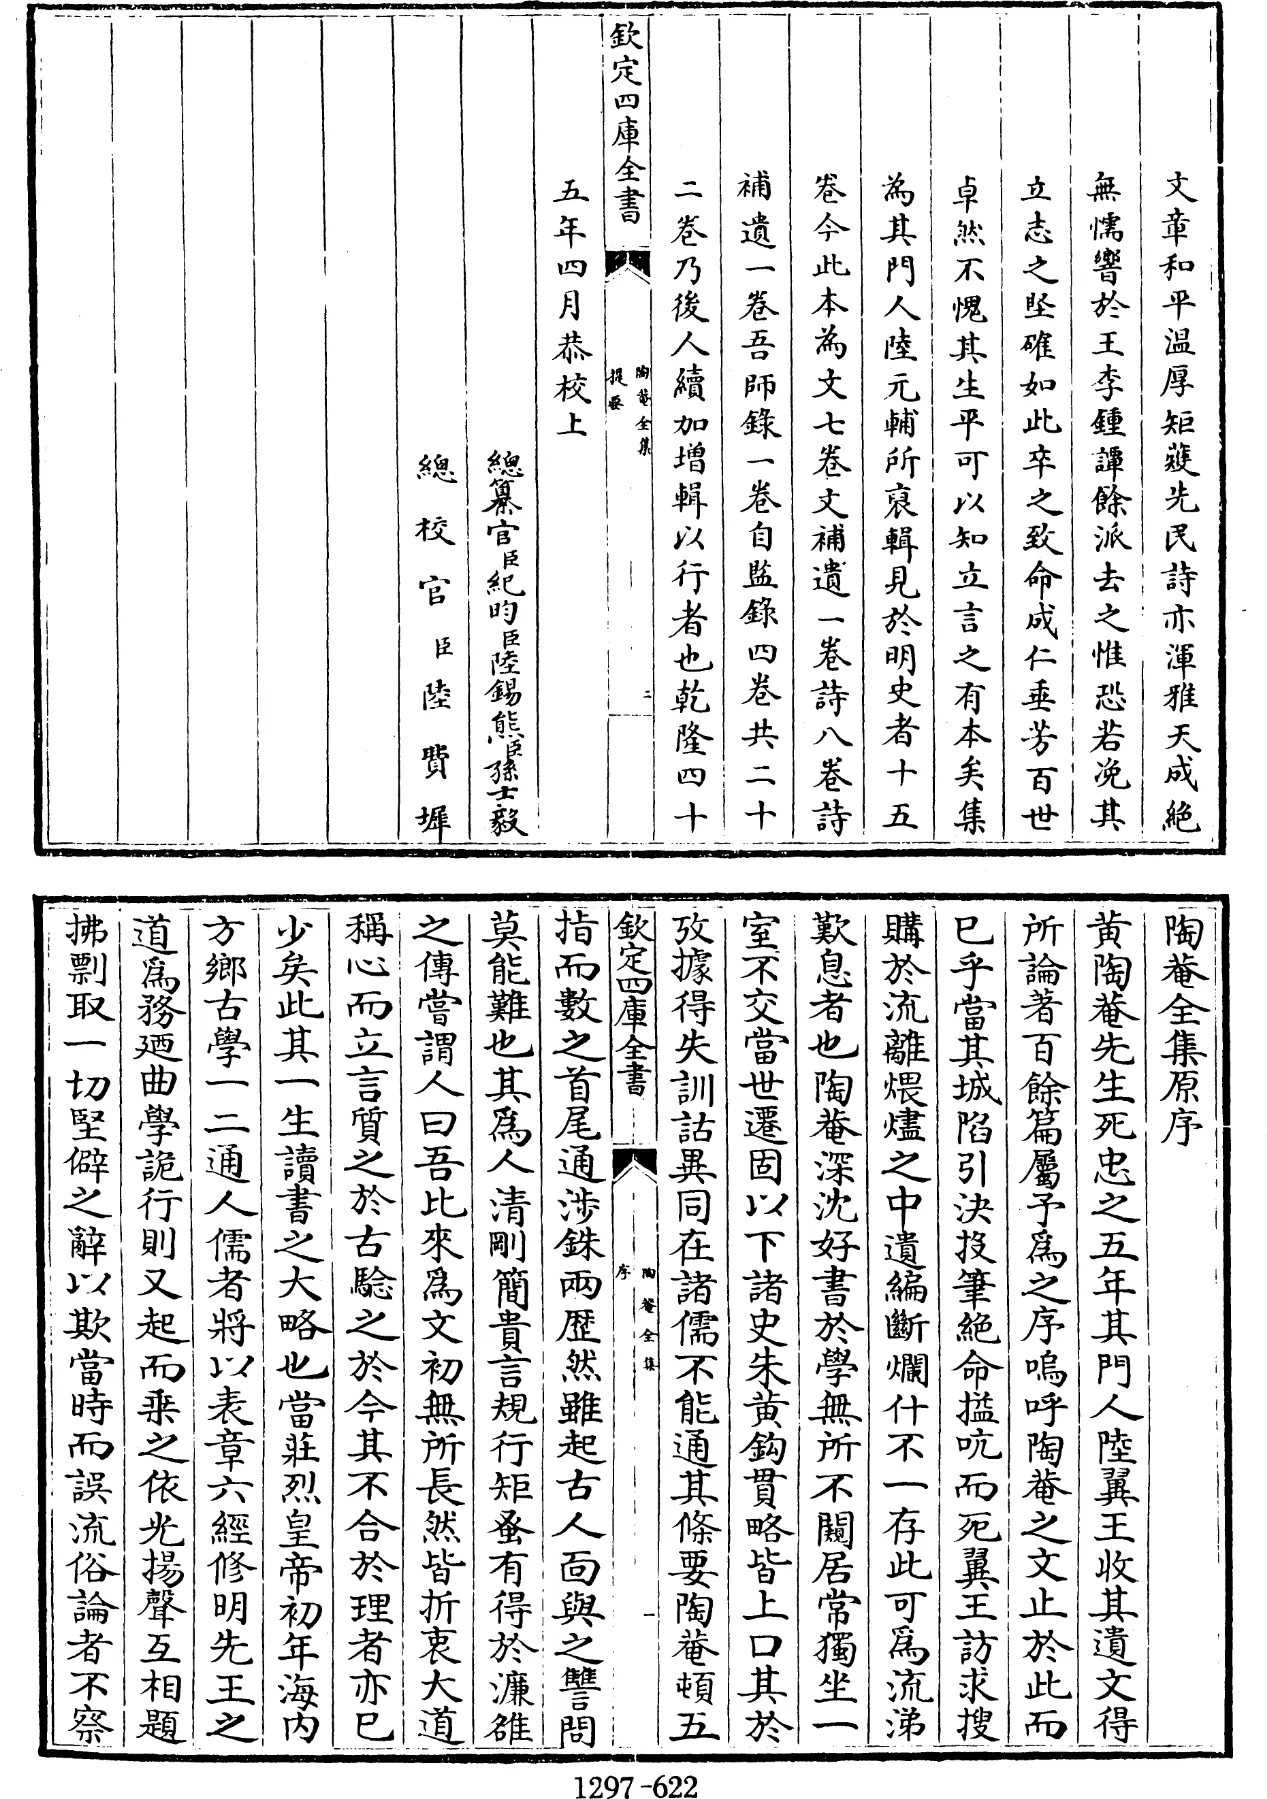 文章和平溫厚矩矱先民詩亦渾雅天成絕
無懦響於王李鍾譚餘派去之惟恐若浼其
立志之堅確如此卒之致命成仁垂芳百世
卓然不愧其生平可以知立言之有本矣集
為其門人陸元輔所裒輯見於明史者十五
卷今此本為文七卷文補遺一卷詩八卷詩
補遺一卷吾師錄一卷自監錄四卷共二十
二卷乃後人續加增輯以行者也乾隆四十
欽定四庫全書
陶菴全集
提要
二
五年四月恭校上
總纂官臣紀昀臣陸錫熊臣孫士毅
總校官臣陸費墀
陶菴全集原序
黃陶菴先生死忠之五年其門人陸翼王收其遺文得
所論著百餘篇屬予爲之序嗚呼陶菴之文止於此而
已乎當其城陷引決投筆絕命搤吭而死翼王訪求搜
購於流離煨燼之中遺編斷爛什不一存此可爲流涕
歎息者也陶菴深沈好書於學無所不闚居常獨坐一
室不交當世遷固以下諸史朱黃鈎貫略皆上口其於
攷據得失訓詁異同在諸儒不能通其條要陶菴頓五
欽定四庫全書
陶菴全集
序
一
指而數之首尾通涉銖兩歷然雖起古人面與之讐問
莫能難也其爲人清剛簡貴言規行矩蚤有得於濂雒
之傳嘗謂人曰吾比來爲文初無所長然皆折衷大道
稱心而立言質之於古驗之於今其不合於理者亦已
少矣此其一生讀書之大略也當莊烈皇帝初年海內
方鄉古學一二通人儒者將以表章六經修明先王之
道爲務廼曲學詭行則又起而乘之依光揚聲互相題
拂剽取一切堅僻之辭以欺當時而誤流俗論者不察
1297-622